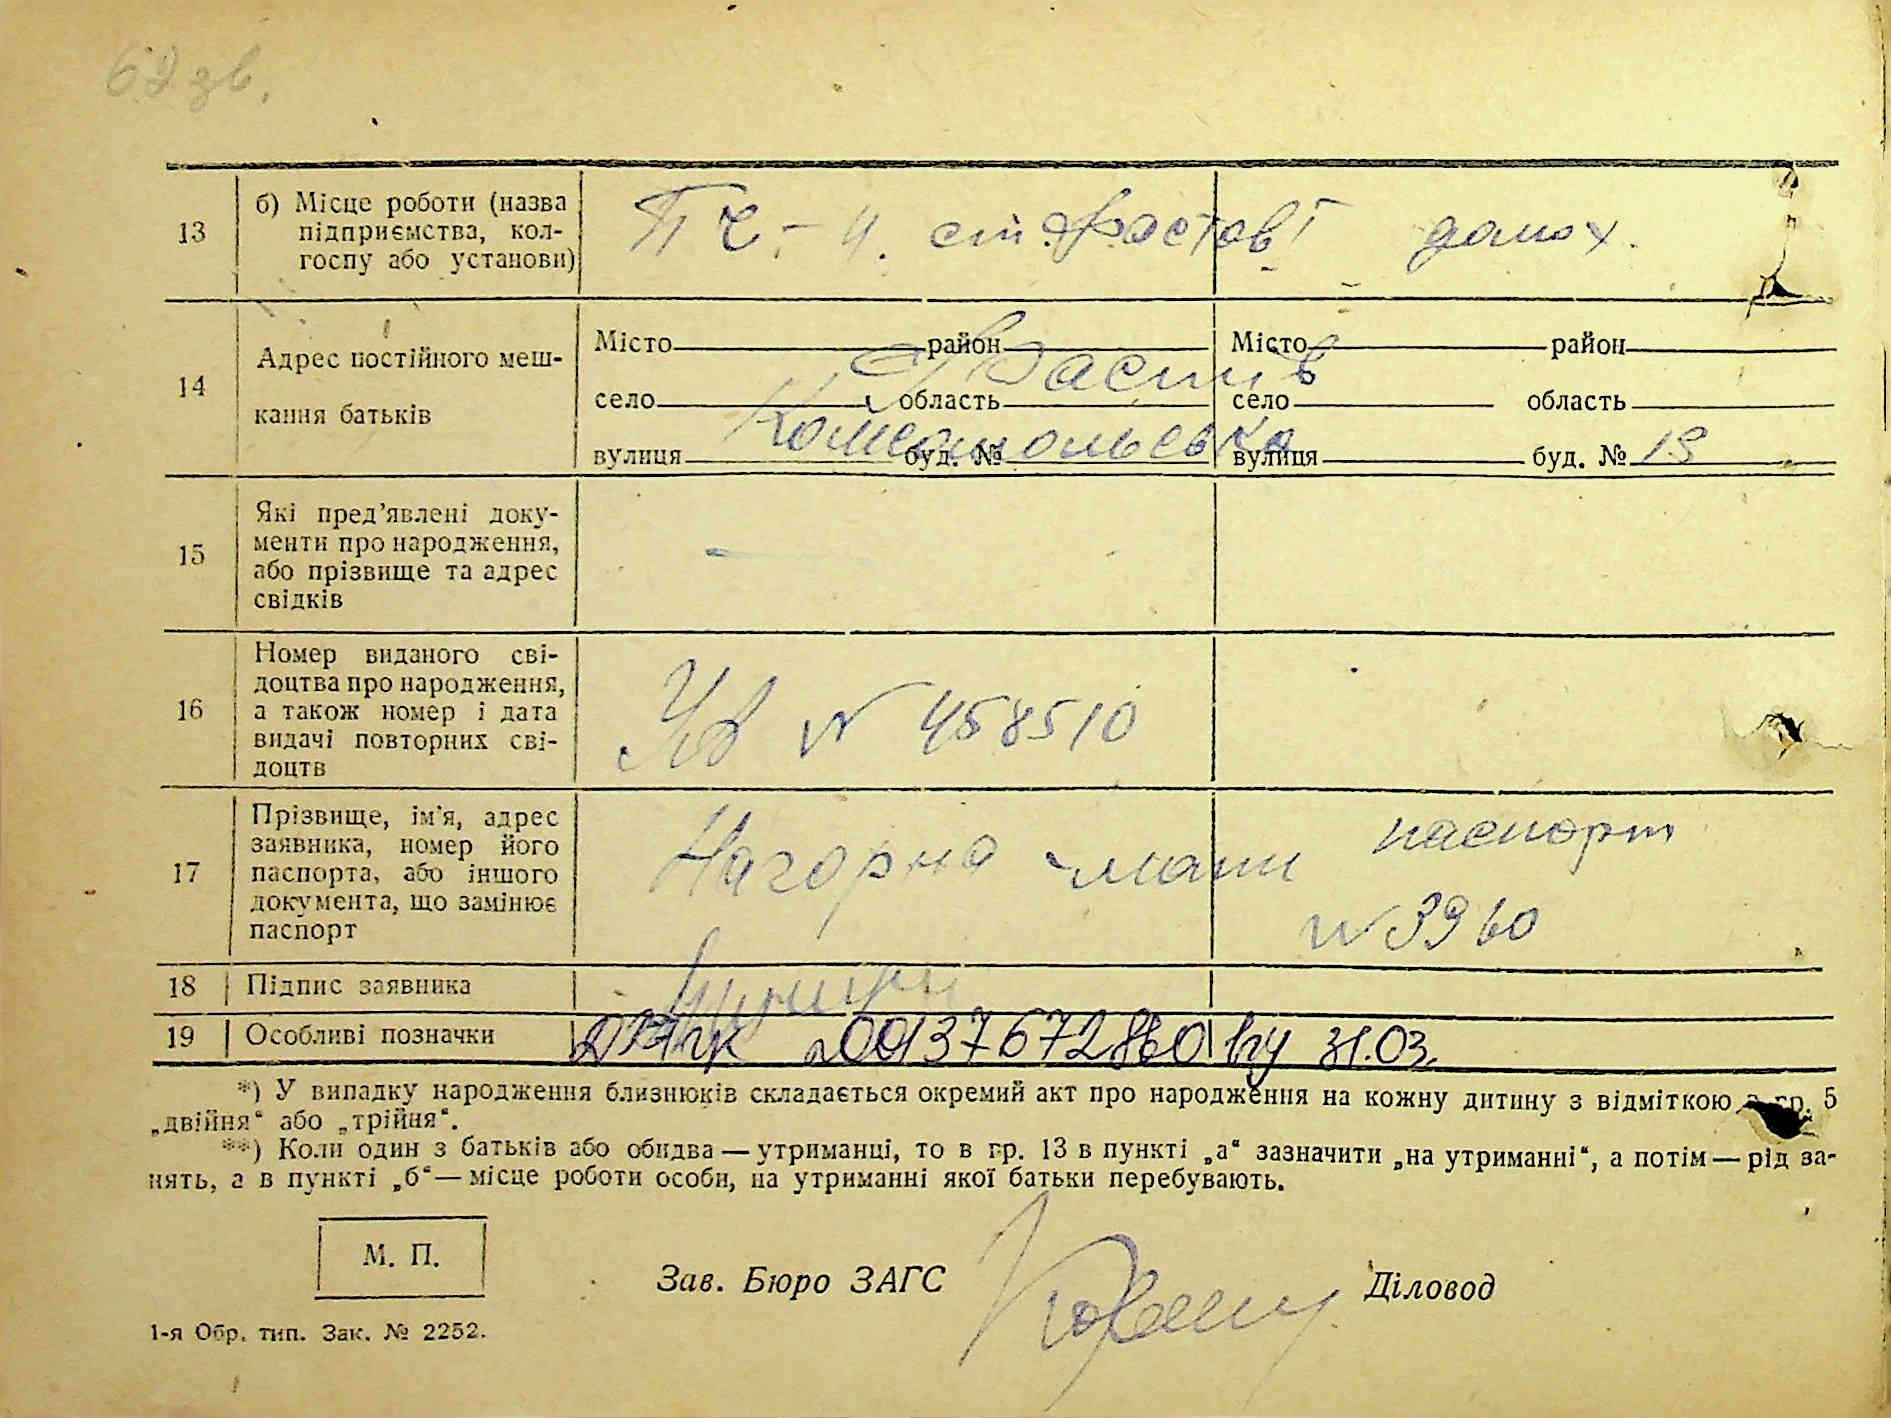 67 зв.
13 б) Місце роботи (назва
підприємства, кол-
госпу або установи)
ПЧ-4. ст. Фастов I домох.
14 Адрес постійного меш-
кання батьків
Місто район Місто район
Фастів
село область село область
Комсомольська
вулиця буд. № вулиця буд. № 19
15 Які пред’явлені доку-
менти про народження,
або прізвище та адрес
свідків
—
16 Номер виданого сві-
доцтва про народження,
а також номер і дата
видачі повторних сві-
доцтв
№ 458510
17 Прізвище, ім’я, адрес
заявника, номер його
паспорта, або іншого
документа, що замінює
паспорт
Нагорна - мати паспорт
№ 3960
18 Підпис заявника
19 Особливі позначки
00137672860 від 31.03.
*) У випадку народження близнюків складається окремий акт про народження на кожну дитину з відміткою в гр. 5
„двійня“ або „трійня“.
**) Коли один з батьків або обидва — утриманці, то в гр. 13 в пункті „а“ зазначити „на утриманні“, а потім — рід за-
нять, а в пункті „б“ — місце роботи особи, на утриманні якої батьки перебувають.
М. П.
Зав. Бюро ЗАГС Діловод
1-я Обр. тип. Зак. № 2252.